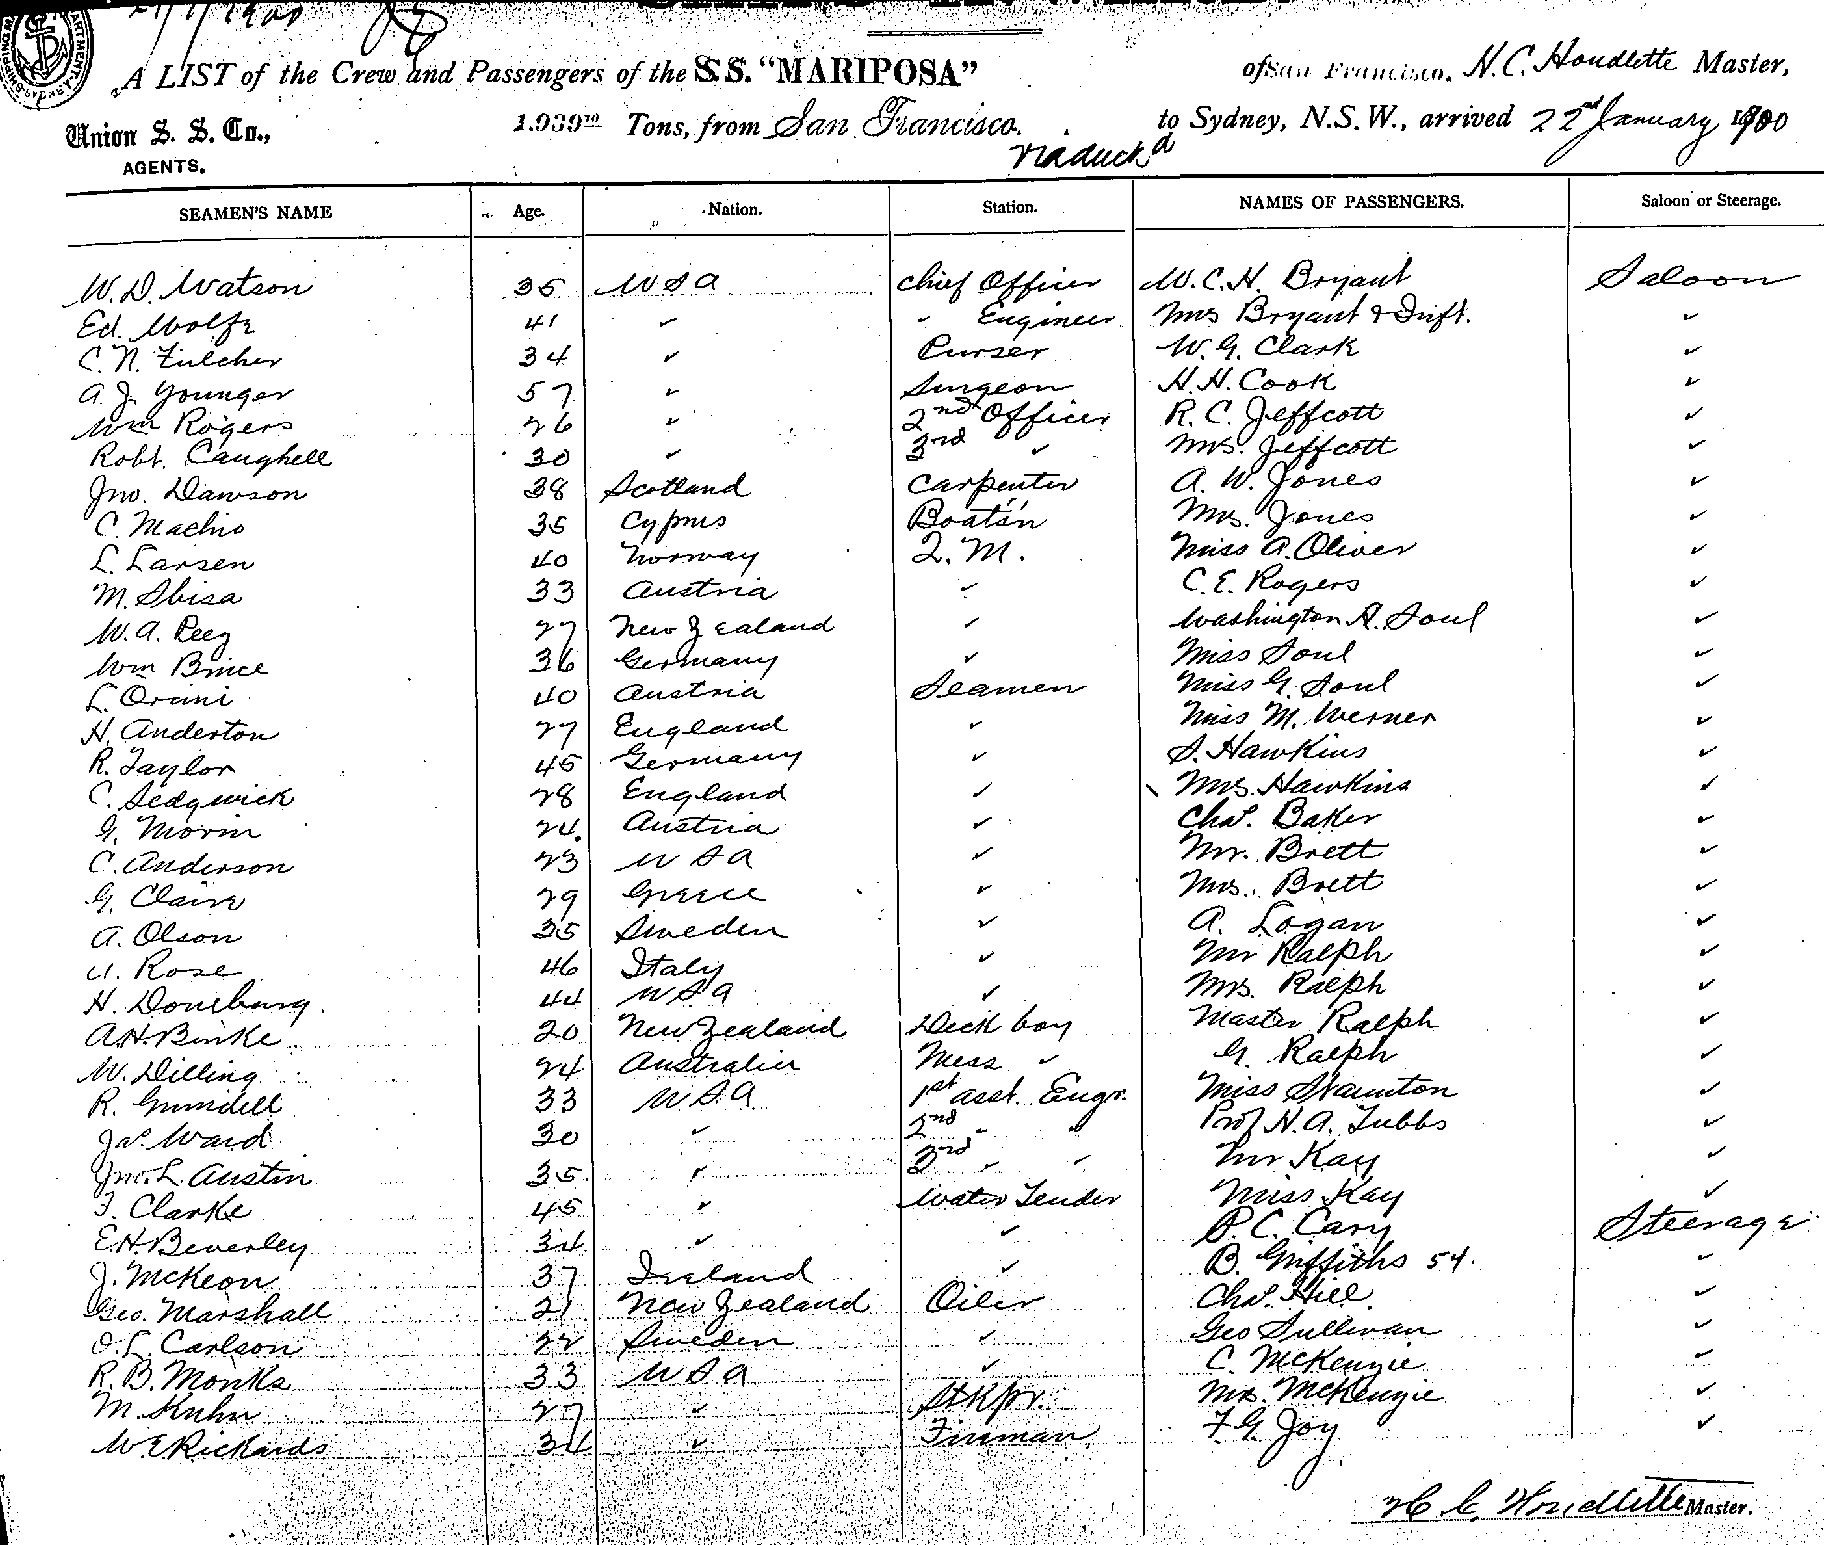 A LIST of the Crew and Passengers of the S.S. "MARIPOSA" of San Francisco, H.C. Houdlette Master,
Union S. S. Co., 1,939 70 Tons, from San Francisco. to Sydney, N.S.W., arrived 22nd January 1900
AGENTS.
SEAMEN'S NAME Age. Nation. Station. NAMES OF PASSENGERS. Saloon or Steerage.
W. D. Watson 35 USA Chief Officer W. C. H. Bryant Saloon
Ed. Wolfe 41 " " Engineer Mrs Bryant & Inft. "
C. N. Fulcher 34 " Purser W. G. Clark "
A. J. Younger 57 " Surgeon H. H. Cook "
Wm Rogers 26 " 2nd Officer R. C. Jeffcott "
Robt. Caughell 30 " 3rd " Mrs. Jeffcott "
Jno. Dawson 38 Scotland Carpenter A. W. Jones "
C. Machio 35 Cyprus Boats'n Mrs. Jones "
L. Larsen 40 Norway Q. M. Miss A. Oliver "
M. Sbisa 33 Austria " C. E. Rogers "
W. A. Peez 27 New Zealand " Washington H. Soul "
Wm Bruce 36 Germany " Miss Soul "
L. Orsini 40 Austria Seamen Miss G. Soul "
H. Anderton 27 England " Miss M. Werner "
R. Taylor 45 Germany " S. Hawkins "
C. Sedgwick 28 England " Mrs. Hawkins "
G. Morin 24 Austria " Chas. Baker "
C. Anderson 23 USA " Mr. Brett "
G. Claire 29 Greece " Mrs. Brett "
A. Olson 35 Sweden " A. Logan "
Rose 46 Italy " Mr Ralph "
H. Doneburg. 44 USA " Mrs. Ralph "
A.H. Binke 20 New Zealand Deck boy Master Ralph "
W. Dilling 24 Australia Mess " G. Ralph "
R. Grundell 33 U.S.A. 1st asst. Engr. Miss Staunton "
Jas. Ward 30 " 2nd " " Prof H. A. Tubbs "
Jno. L. Austin 35 " 3rd " " Mr Kay "
F. Clarke 45 " Water Tender Miss Kay "
E.H. Beverley 34 " " P. C. Cary Steerage
J. McKeon 37 Ireland " B. Griffiths 54. "
Geo. Marshall 21 New Zealand Oiler Chas. Hill "
O. L. Carlson 22 Sweden " Geo Sullivan "
R. B. Monks 33 USA " C. McKenzie "
M. Kuhn 27 " Stkpr. Mrs. McKenzie "
W. E Rickards 34 " Fireman F. G. Joy "
H C. Houdlette Master.